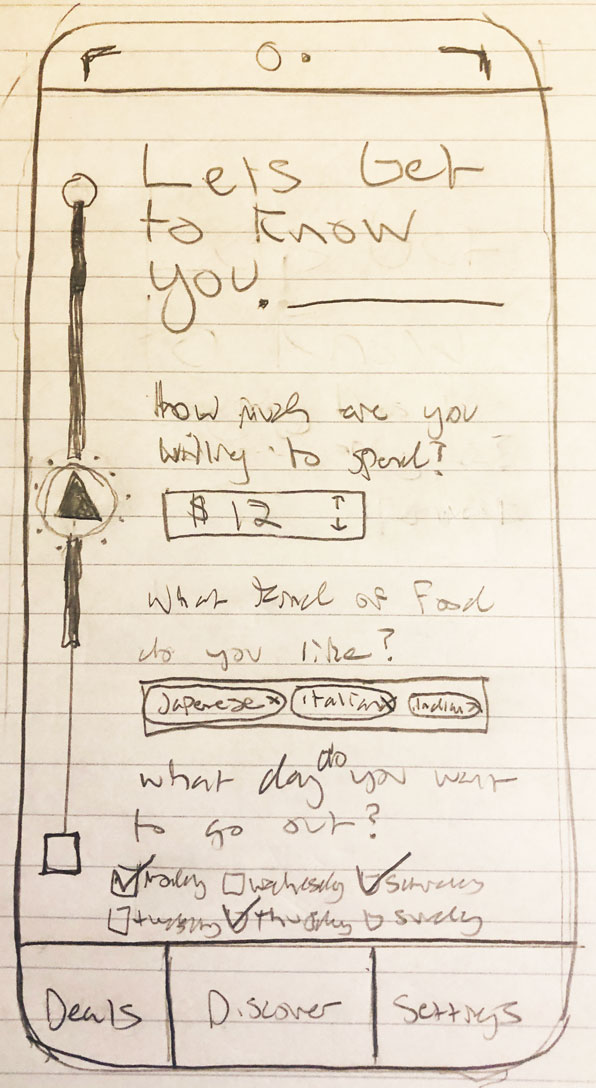 Lets Get
to know
you.
How much are you
willing to spend?
$ 12
what kind of food
do you like?
Japenese x Italian x Indian x
what day do you want
to go out?
monday wednesday saturday
tuesday thursday sunday
Deals Discover Settings